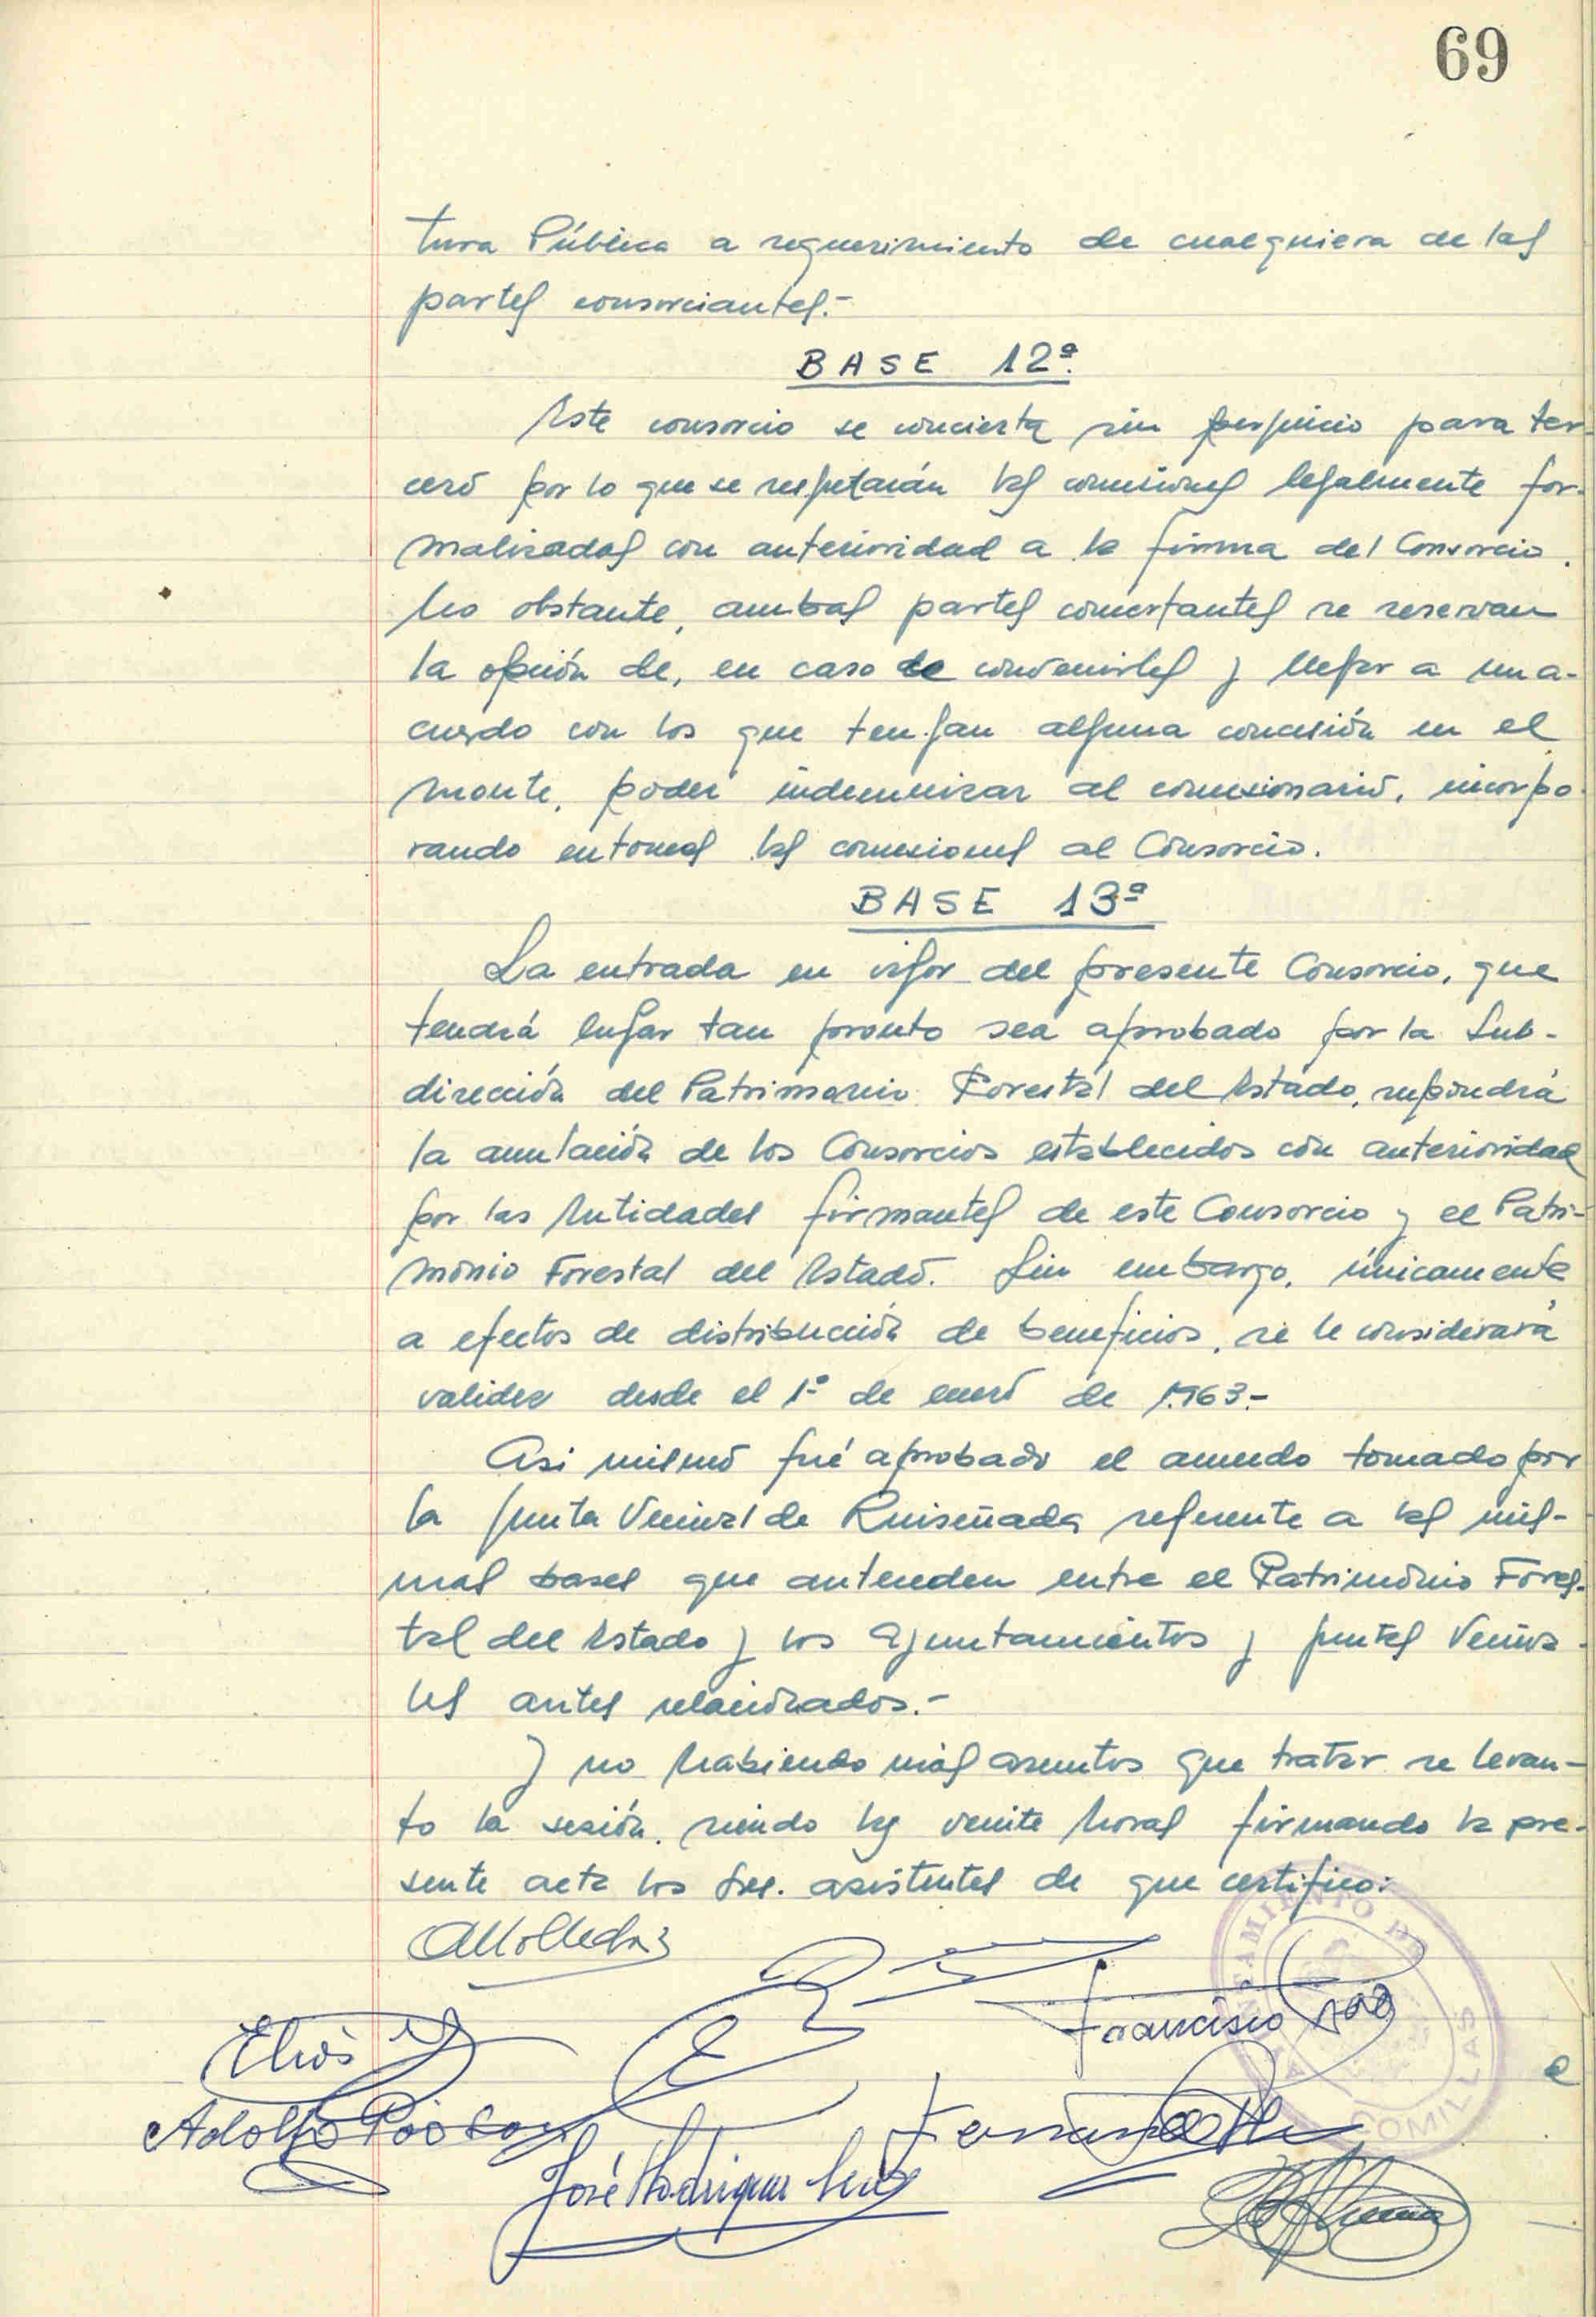 69
tura Pública a requerimiento de cualquiera de las
partes consorciantes.-
BASE 12ª.
Este consorcio se concierta sin perjuicio para ter-
cero por lo que se respetarán las concesiones legalmente for-
malizadas con anterioridad a la firma del Consorcio.
No obstante, ambas partes concertantes se reservan
la opción de, en caso de convenirles y llegar a un a-
cuerdo con los que tengan alguna concesión en el
monte, poder indemnizar al concesionario, incorpo-
rando entonces las concesiones al Consorcio.
BASE 13ª
La entrada en vigor del presente Consorcio, que
tendrá lugar tan pronto sea aprobado por la Sub-
dirección del Patrimonio Forestal del Estado, supondrá
la anulación de los Consorcios establecidos con anterioridad
por las Entidades firmantes de este Consorcio y el Patri-
monio Forestal del Estado. Sin embargo, únicamente
a efectos de distribución de beneficios, se le considerará
validez desde el 1º de enero de 1963.-
Asi mismo fué aprobado el acuerdo tomado por
la Junta Vecinal de Ruiseñada referente a las mis-
mas bases que anteceden entre el Patrimonio Fores-
tal del Estado y los Ayuntamientos y Juntas Vecina-
les antes relacionados.-
Y no habiendo más asuntos que tratar se levan-
to la sesión, siendo las veinte horas firmando la pre-
sente acta los Sres. asistentes de que certifico:
Elías
Francisco
Adolfo
José Rodriguez
Fernando
AYUNTAMIENTO DE
COMILLAS